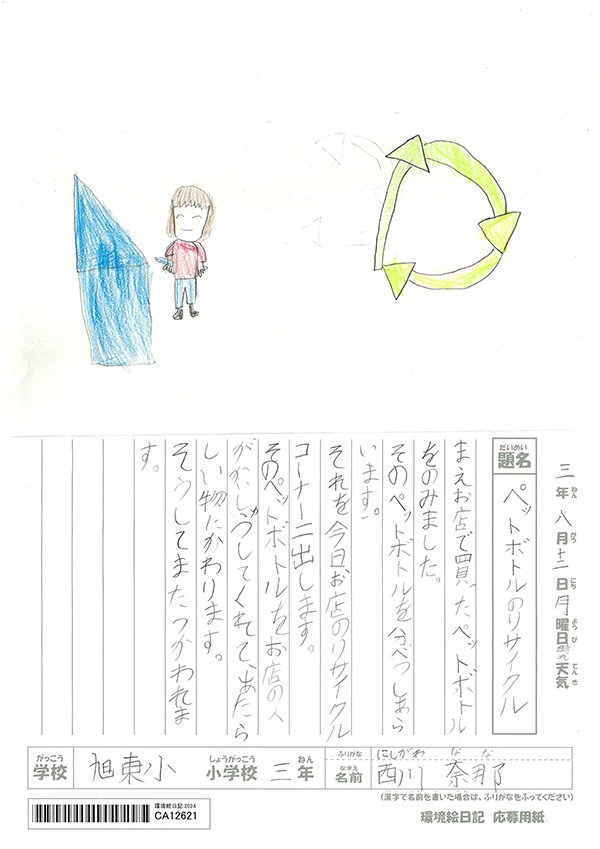 三年八月十二日月曜日 天気
題名 ペットボトルのリサイクル
まえお店で買ったペットボトル
をのみました。
そのペットボトルを分べつしあら
います。
それを今日、お店のリサイクル
コーナーニ出します。
そのペットボトルをお店の人
がかいしゅうしてくれて、あたら
しい物にかわります。
そうしてまたつかわれま
す。
がっこう
学校
旭東小
しょうがっこう
小学校
三
ねん
年
ふりがな
にしがわ なな
なまえ
名前
西川 奈那
(漢字で名前を書いた場合は、ふりがなをふってください)
環境絵日記 2024
CA12621
環境絵日記 応募用紙